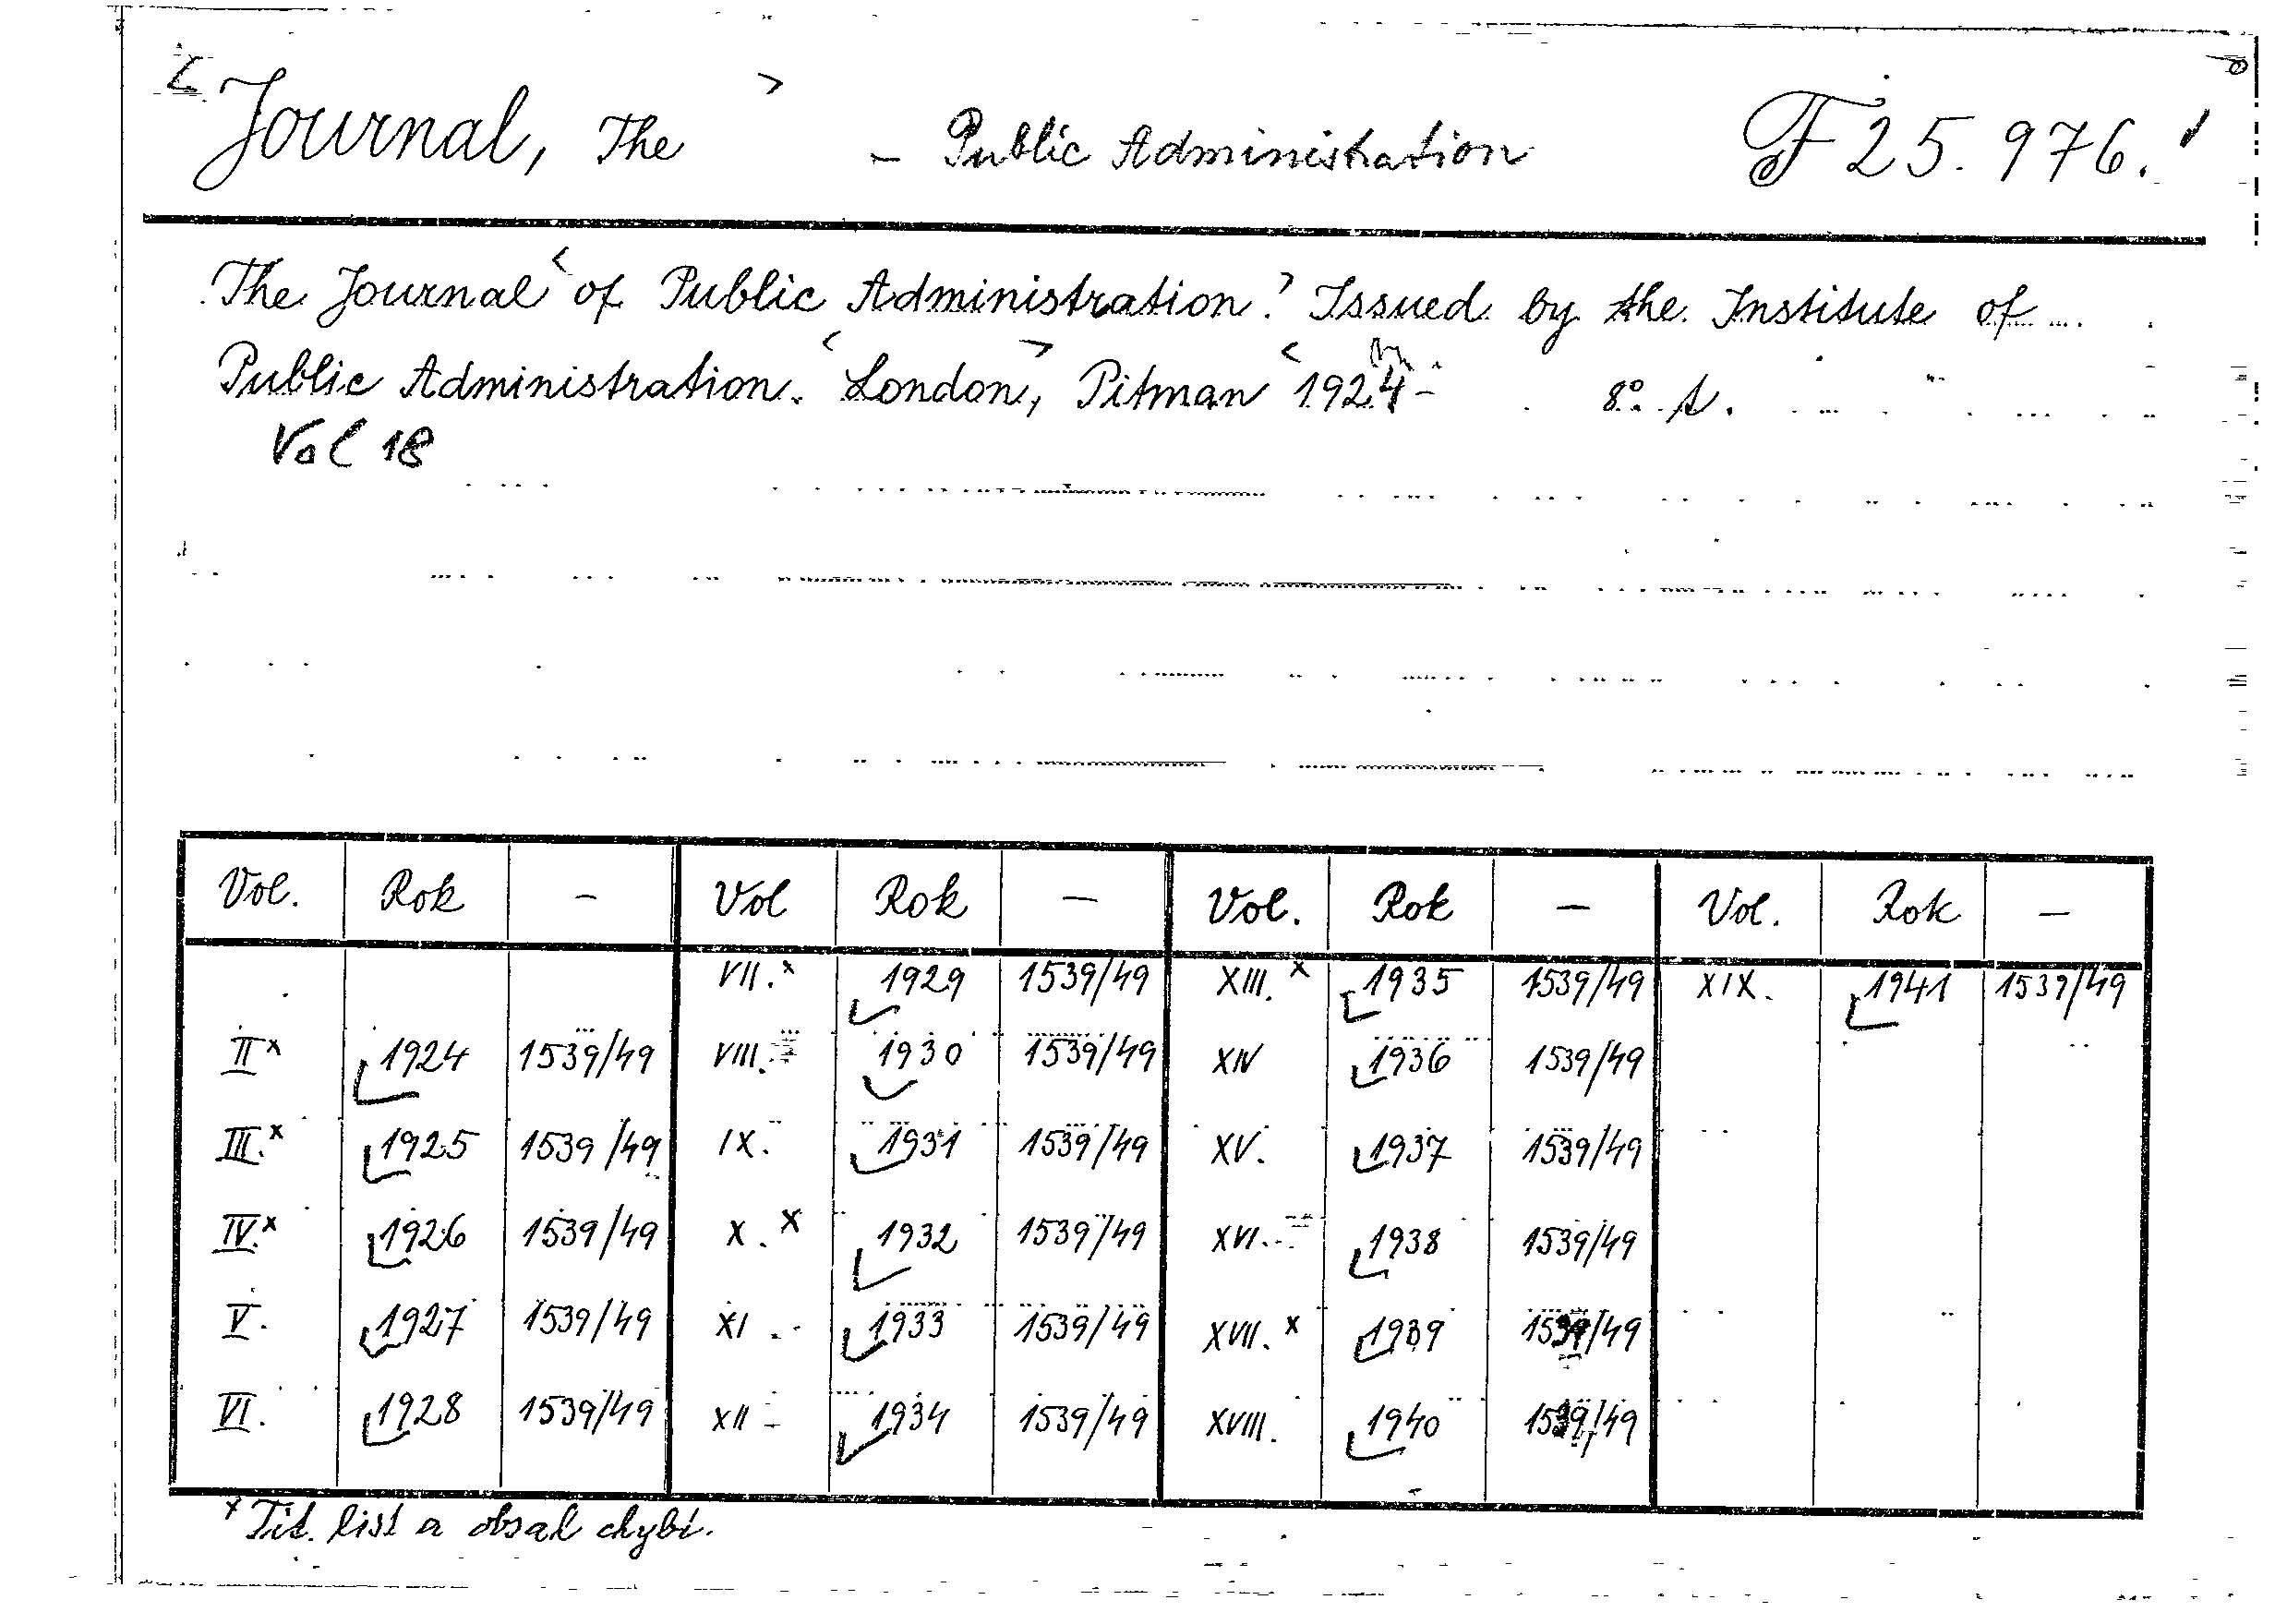 Journal, The – Public Administration F 25.976.
The Journal of Public Administration. Issued by the Institute of
Public Administration. London, Pitman 1924– 8° A.
Vol 18
Vol. Rok – Vol Rok – Vol. Rok – Vol. Rok –
VII.x 1929 1539/49 XIII.x 1935 1539/49 XIX. 1941 1539/49
II x 1924 1539/49 VIII. 1930 1539/49 XIV 1936 1539/49
III.x 1925 1539/49 IX. 1931 1539/49 XV. 1937 1539/49
IV.x 1926 1539/49 X. x 1932 1539/49 XVI. 1938 1539/49
V. 1927 1539/49 XI 1933 1539/49 XVII. x 1939 1539/49
VI. 1928 1539/49 XII 1934 1539/49 XVIII. 1940 1539/49
x Tit. list a obsah chybí.